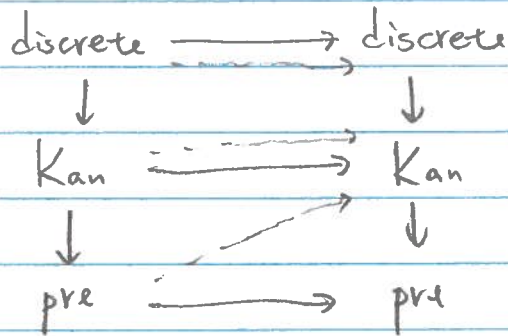 discrete discrete
Kan Kan
pre pre